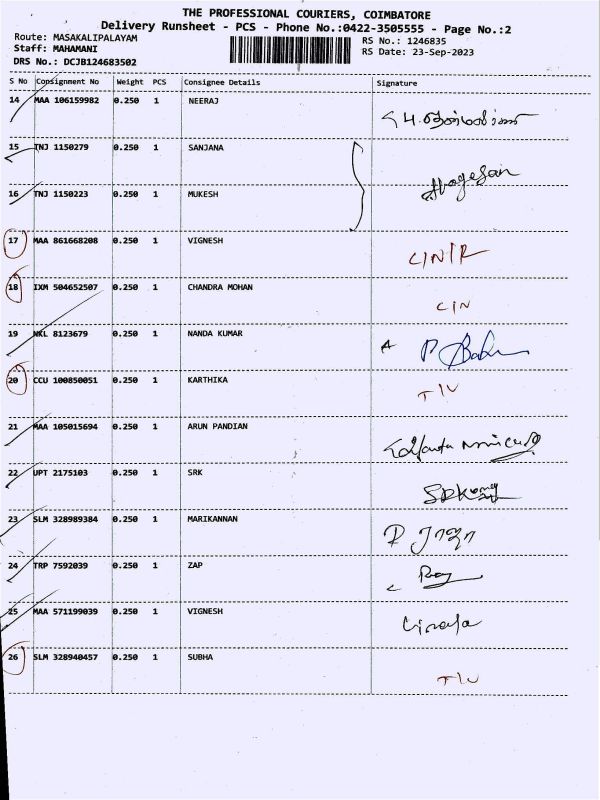 THE PROFESSIONAL COURIERS, COIMBATORE
Delivery Runsheet - PCS - Phone No.:0422-3505555 - Page No.:2
Route: MASAKALIPALAYAM
Staff: MAHAMANI
DRS No.: DCJB124683502
RS No.: 1246835
RS Date: 23-Sep-2023
S No Consignment No Weight PCS Consignee Details Signature
14 MAA 106159982 0.250 1 NEERAJ
15 TNJ 1150279 0.250 1 SANJANA
16 TNJ 1150223 0.250 1 MUKESH
17 MAA 861668208 0.250 1 VIGNESH C/N/R
18 IXM 504652507 0.250 1 CHANDRA MOHAN C/N
19 NKL 8123679 0.250 1 NANDA KUMAR
20 CCU 100850051 0.250 1 KARTHIKA
21 MAA 105015694 0.250 1 ARUN PANDIAN
22 UPT 2175103 0.250 1 SRK SRK
23 SLM 328989384 0.250 1 MARIKANNAN
24 TRP 7592039 0.250 1 ZAP
25 MAA 571199039 0.250 1 VIGNESH
26 SLM 328940457 0.250 1 SUBHA